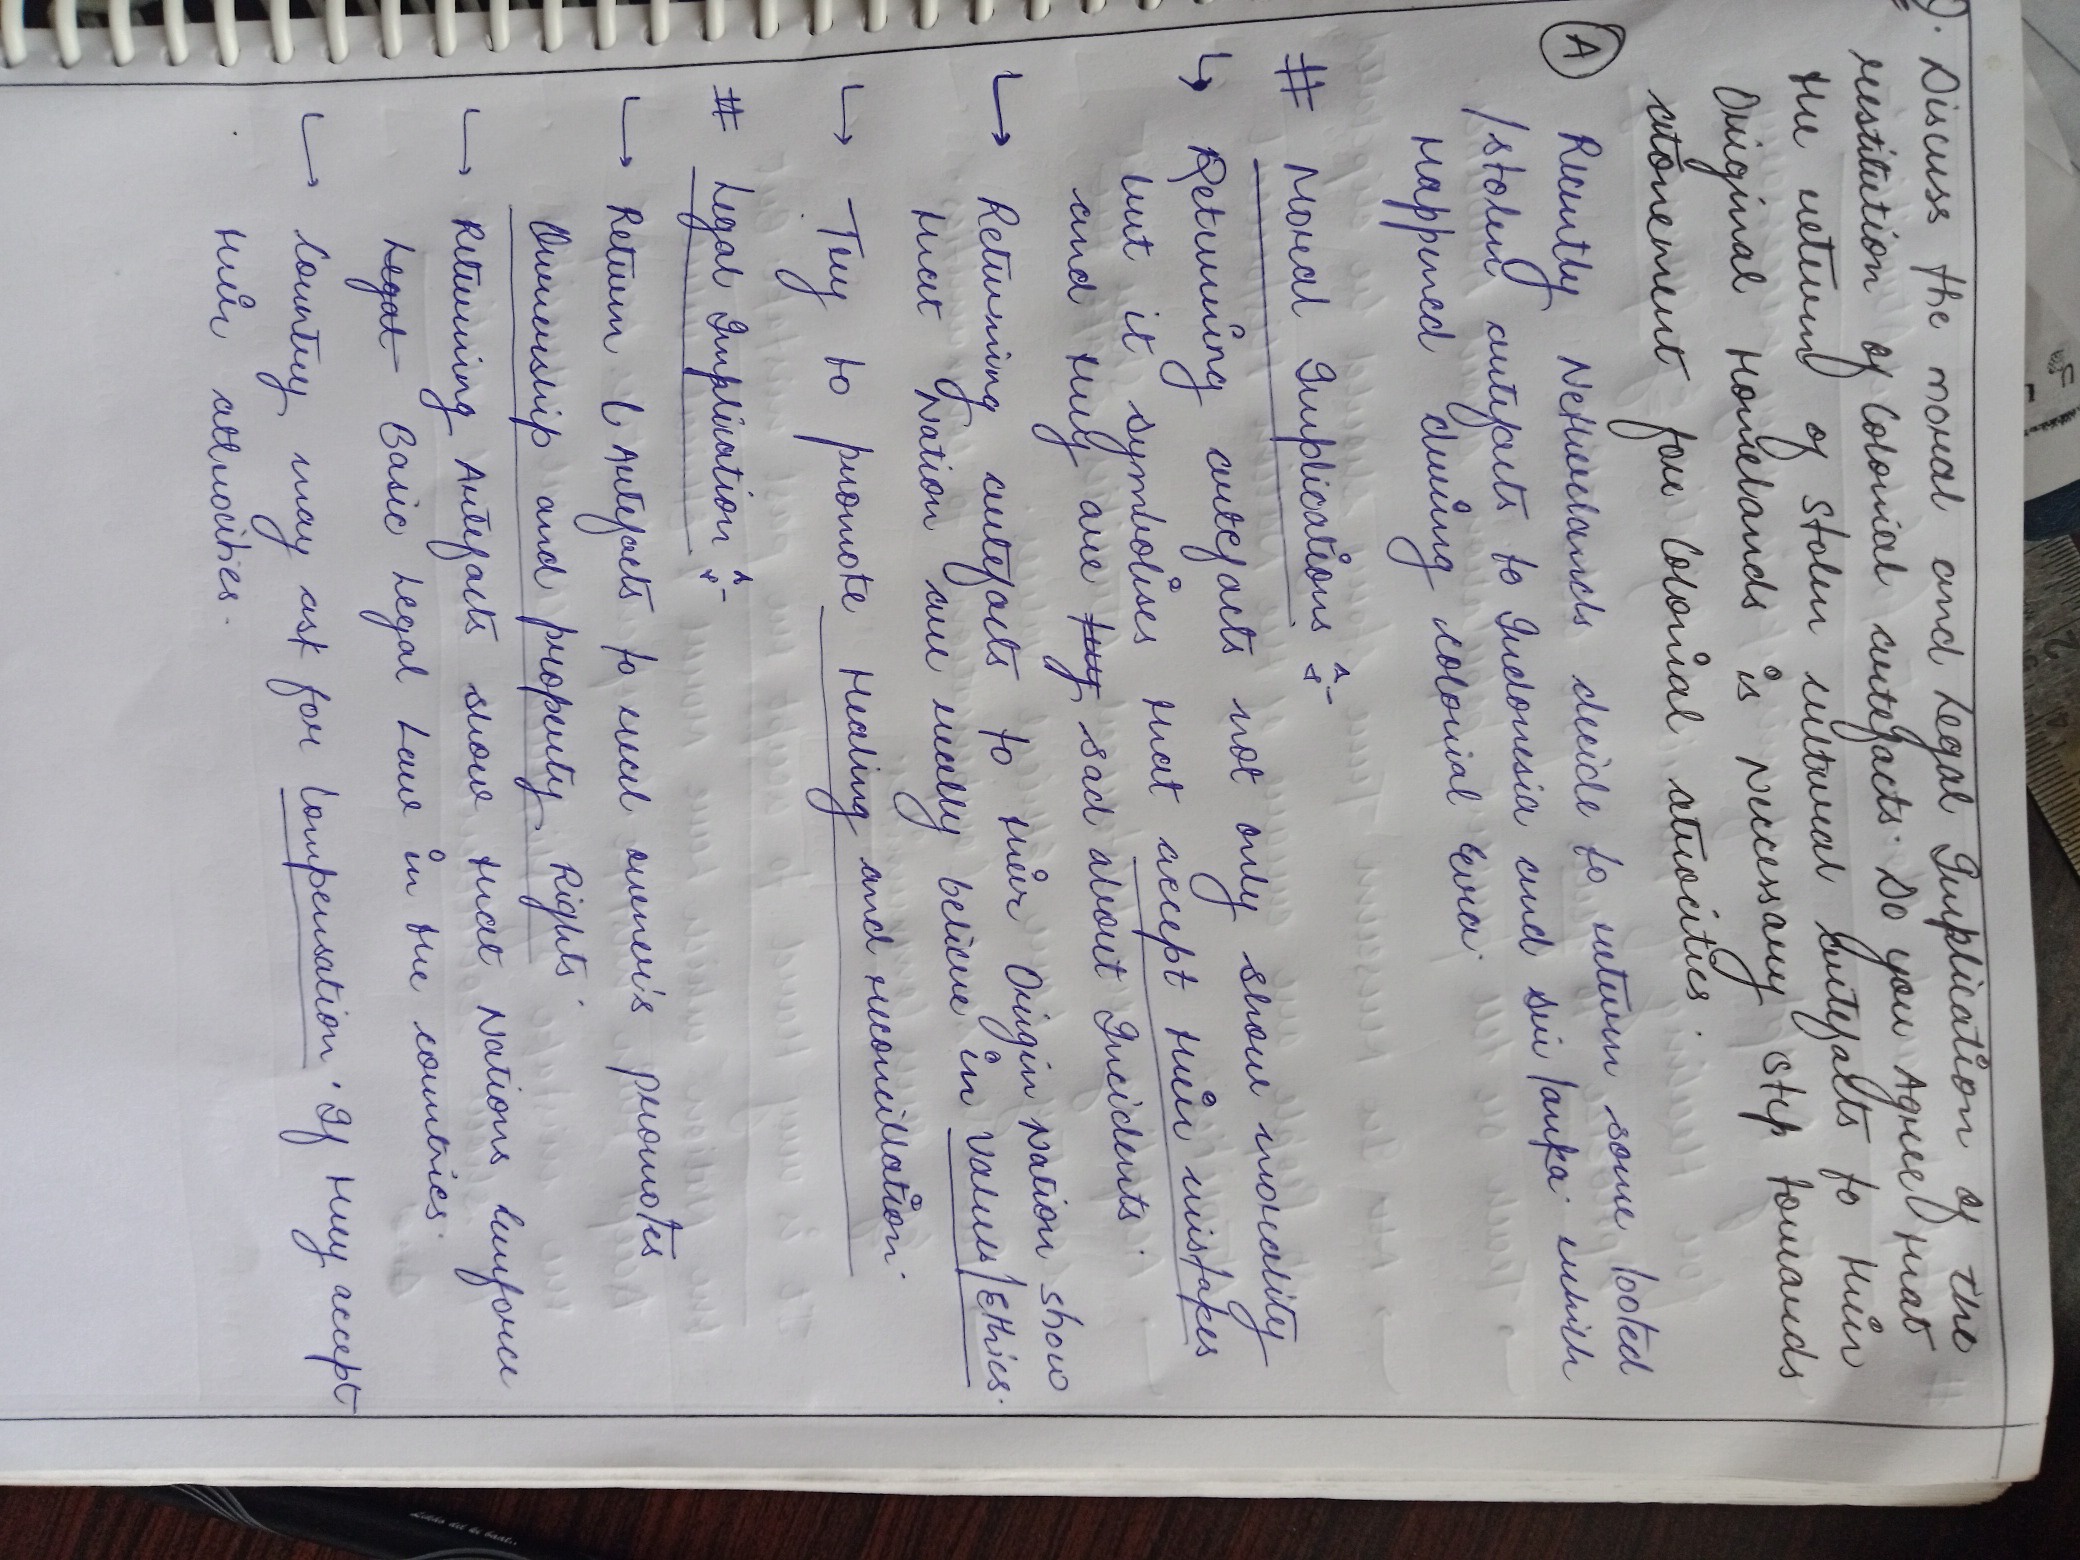 Q. Discuss the moral and Legal Implication of the
restitution of Colonial artefacts. Do you Agree that
the return of stolen cultural Artefacts to their
Original Homelands is Necessary step towards
atonement for Colonial atrocities.
(A) Recently Netherlands decide to return some looted
/stolen artefacts to Indonesia and Sri lanka. which
Happened during colonial Era.
# Moral Implications :-
↳ Returning artefacts not only show morality
but it symbolises that accept their mistakes
and they are they sad about Incidents.
↳ Returning artefacts to their Origin Nation show
that Nation are really believe in Values/Ethics.
↳ Try to promote Healing and reconcillation.
# Legal Implication :-
↳ Return Artefacts to real owner's promotes
Ownership and property Rights.
↳ Returning Artefacts show that Nations enforce
Legal Basic Legal Law in the countries.
↳ Country may ask for Compensation. If they accept
their atrocities.
Likho dil ki baat..